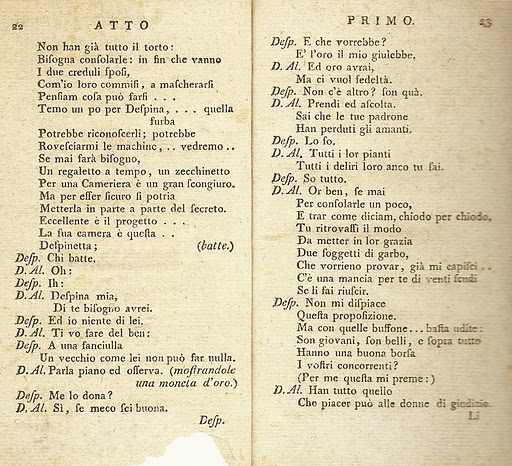 22 ATTO
Non han già tutto il torto:
Bisogna conſolarle: in fin che vanno
I due creduli ſpoſi,
Com'io loro commiſi, a maſcherarſi
Penſiam coſa può farſi . . .
Temo un po per Deſpina, . . . quella
furba
Potrebbe riconoſcerli; potrebbe
Roveſciarmi le machine, .. vedremo ..
Se mai farà biſogno,
Un regaletto a tempo, un zecchinetto
Per una Cameriera è un gran ſcongiuro.
Ma per eſſer ſicuro ſi potria
Metterla in parte a parte del ſecreto.
Eccellente è il progetto . . .
La ſua camera è queſta . .
Deſpinetta; (batte.)
Deſp. Chi batte.
D. Al. Oh:
Deſp. Ih:
D. Al. Deſpina mia,
Di te biſogno avrei.
Deſp. Ed io niente di lei.
D. Al. Ti vo fare del ben:
Deſp. A una fanciulla
Un vecchio come lei non può far nulla.
D. Al. Parla piano ed oſſerva. (moſtrandole
una moneta d'oro.)
Deſp. Me lo dona?
D. Al. Sì, ſe meco ſei buona.
Deſp.
PRIMO. 23
Deſp. E che vorrebbe?
E' l'oro il mio giulebbe.
D. Al. Ed oro avrai,
Ma ci vuol fedeltà.
Deſp. Non c'è altro? ſon quà.
D. Al. Prendi ed aſcolta.
Sai che le tue padrone
Han perduti gli amanti.
Deſp. Lo ſo.
D. Al. Tutti i lor pianti
Tutti i deliri loro anco tu ſai.
Deſp. So tutto.
D. Al. Or ben, ſe mai
Per conſolarle un poco,
E trar come diciam, chiodo per chiodo,
Tu ritrovaſſi il modo
Da metter in lor grazia
Due ſoggetti di garbo,
Che vorrieno provar, già mi capiſci ..
C'è una mancia per te di venti ſcudi
Se li fai riuſcir.
Deſp. Non mi diſpiace
Queſta propoſizione.
Ma con quelle buffone... baſta udite:
Son giovani, ſon belli, e ſopra tutto
Hanno una buona borſa
I voſtri concorrenti?
(Per me queſta mi preme:)
D. Al. Han tutto quello
Che piacer può alle donne di giudizio.
Li